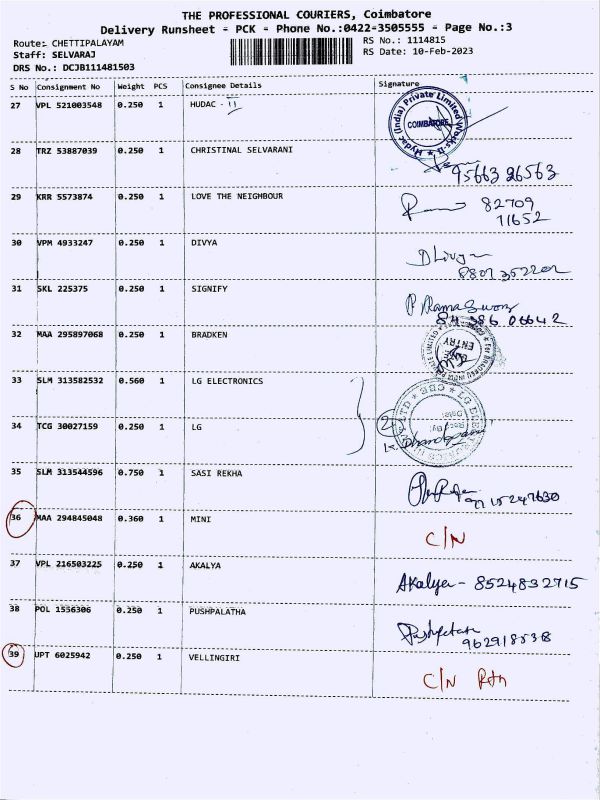 THE PROFESSIONAL COURIERS, Coimbatore
Delivery Runsheet - PCK - Phone No.:0422-3505555 - Page No.:3
Route: CHETTIPALAYAM
RS No.: 1114815
Staff: SELVARAJ
RS Date: 10-Feb-2023
DRS No.: DCJB111481503
S No Consignment No Weight PCS Consignee Details Signature
27 VPL 521003548 0.250 1 HUDAC - II
Hydac (India) Private Limited Works-II
COIMBATORE
28 TRZ 53887039 0.250 1 CHRISTINAL SELVARANI
95663 26563
29 KRR 5573874 0.250 1 LOVE THE NEIGHBOUR
82709
11652
30 VPM 4933247 0.250 1 DIVYA
Divya
31 SKL 225375 0.250 1 SIGNIFY
06642
32 MAA 295897068 0.250 1 BRADKEN
ENTRY
33 SLM 313582532 0.560 1 LG ELECTRONICS
34 TCG 30027159 0.250 1 LG
2
35 SLM 313544596 0.750 1 SASI REKHA
36 MAA 294845048 0.360 1 MINI
C/N
37 VPL 216503225 0.250 1 AKALYA
Akalya - 8524832715
38 POL 1556306 0.250 1 PUSHPALATHA
39 UPT 6025942 0.250 1 VELLINGIRI
C/N Rtn